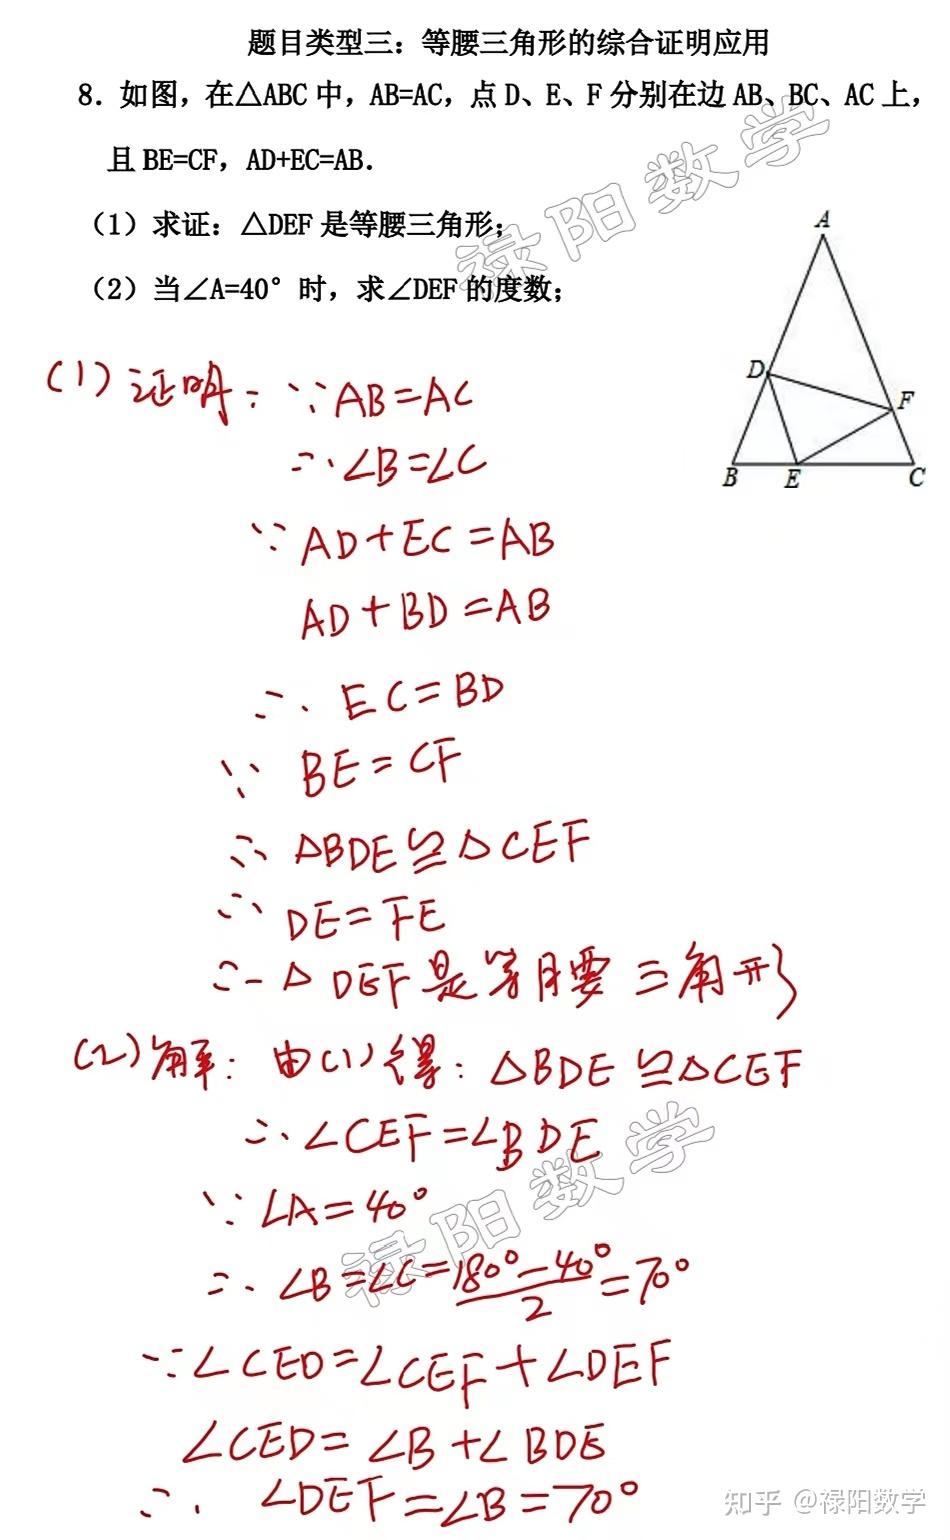 题目类型三：等腰三角形的综合证明应用
8．如图，在△ABC中，AB=AC，点D、E、F分别在边AB、BC、AC上，
且BE=CF，AD+EC=AB．
（1）求证：△DEF是等腰三角形；
（2）当∠A=40°时，求∠DEF的度数；
禄阳数学
A
D
F
B
E
C
(1) 证明：∵AB=AC
∴∠B=∠C
∵AD+EC=AB
AD+BD=AB
∴EC=BD
∵BE=CF
∴△BDE≌△CEF
∴DE=FE
∴△DEF是等腰三角形
(2) 解：由(1)得：△BDE≌△CEF
∴∠CEF=∠BDE
禄阳数学
∵∠A=40°
∴∠B=∠C=180°-40°/2=70°
∵∠CED=∠CEF+∠DEF
∠CED=∠B+∠BDE
∴∠DEF=∠B=70°
知乎 @禄阳数学